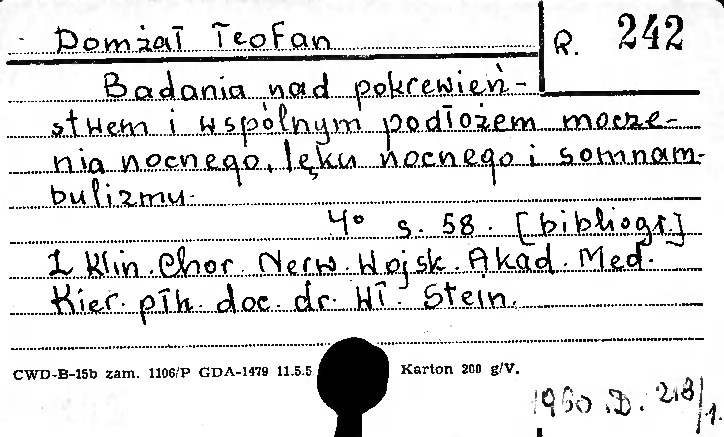 Domżał Teofan
R. 242
Badania nad pokrewień-
stwem i wspólnym podłożem mocze-
nia nocnego, lęku nocnego i somnam-
bulizmu.
4° s. 58. [bibliogr.]
Z Klin. Chor. Nerw. Wojsk. Akad. Med.
Kier. płk. doc. dr. Wł. Stein.
CWD-B-15b zam. 1106/P GDA-1479 11.5.5 Karton 200 g/V.
1960.D. 218/1.